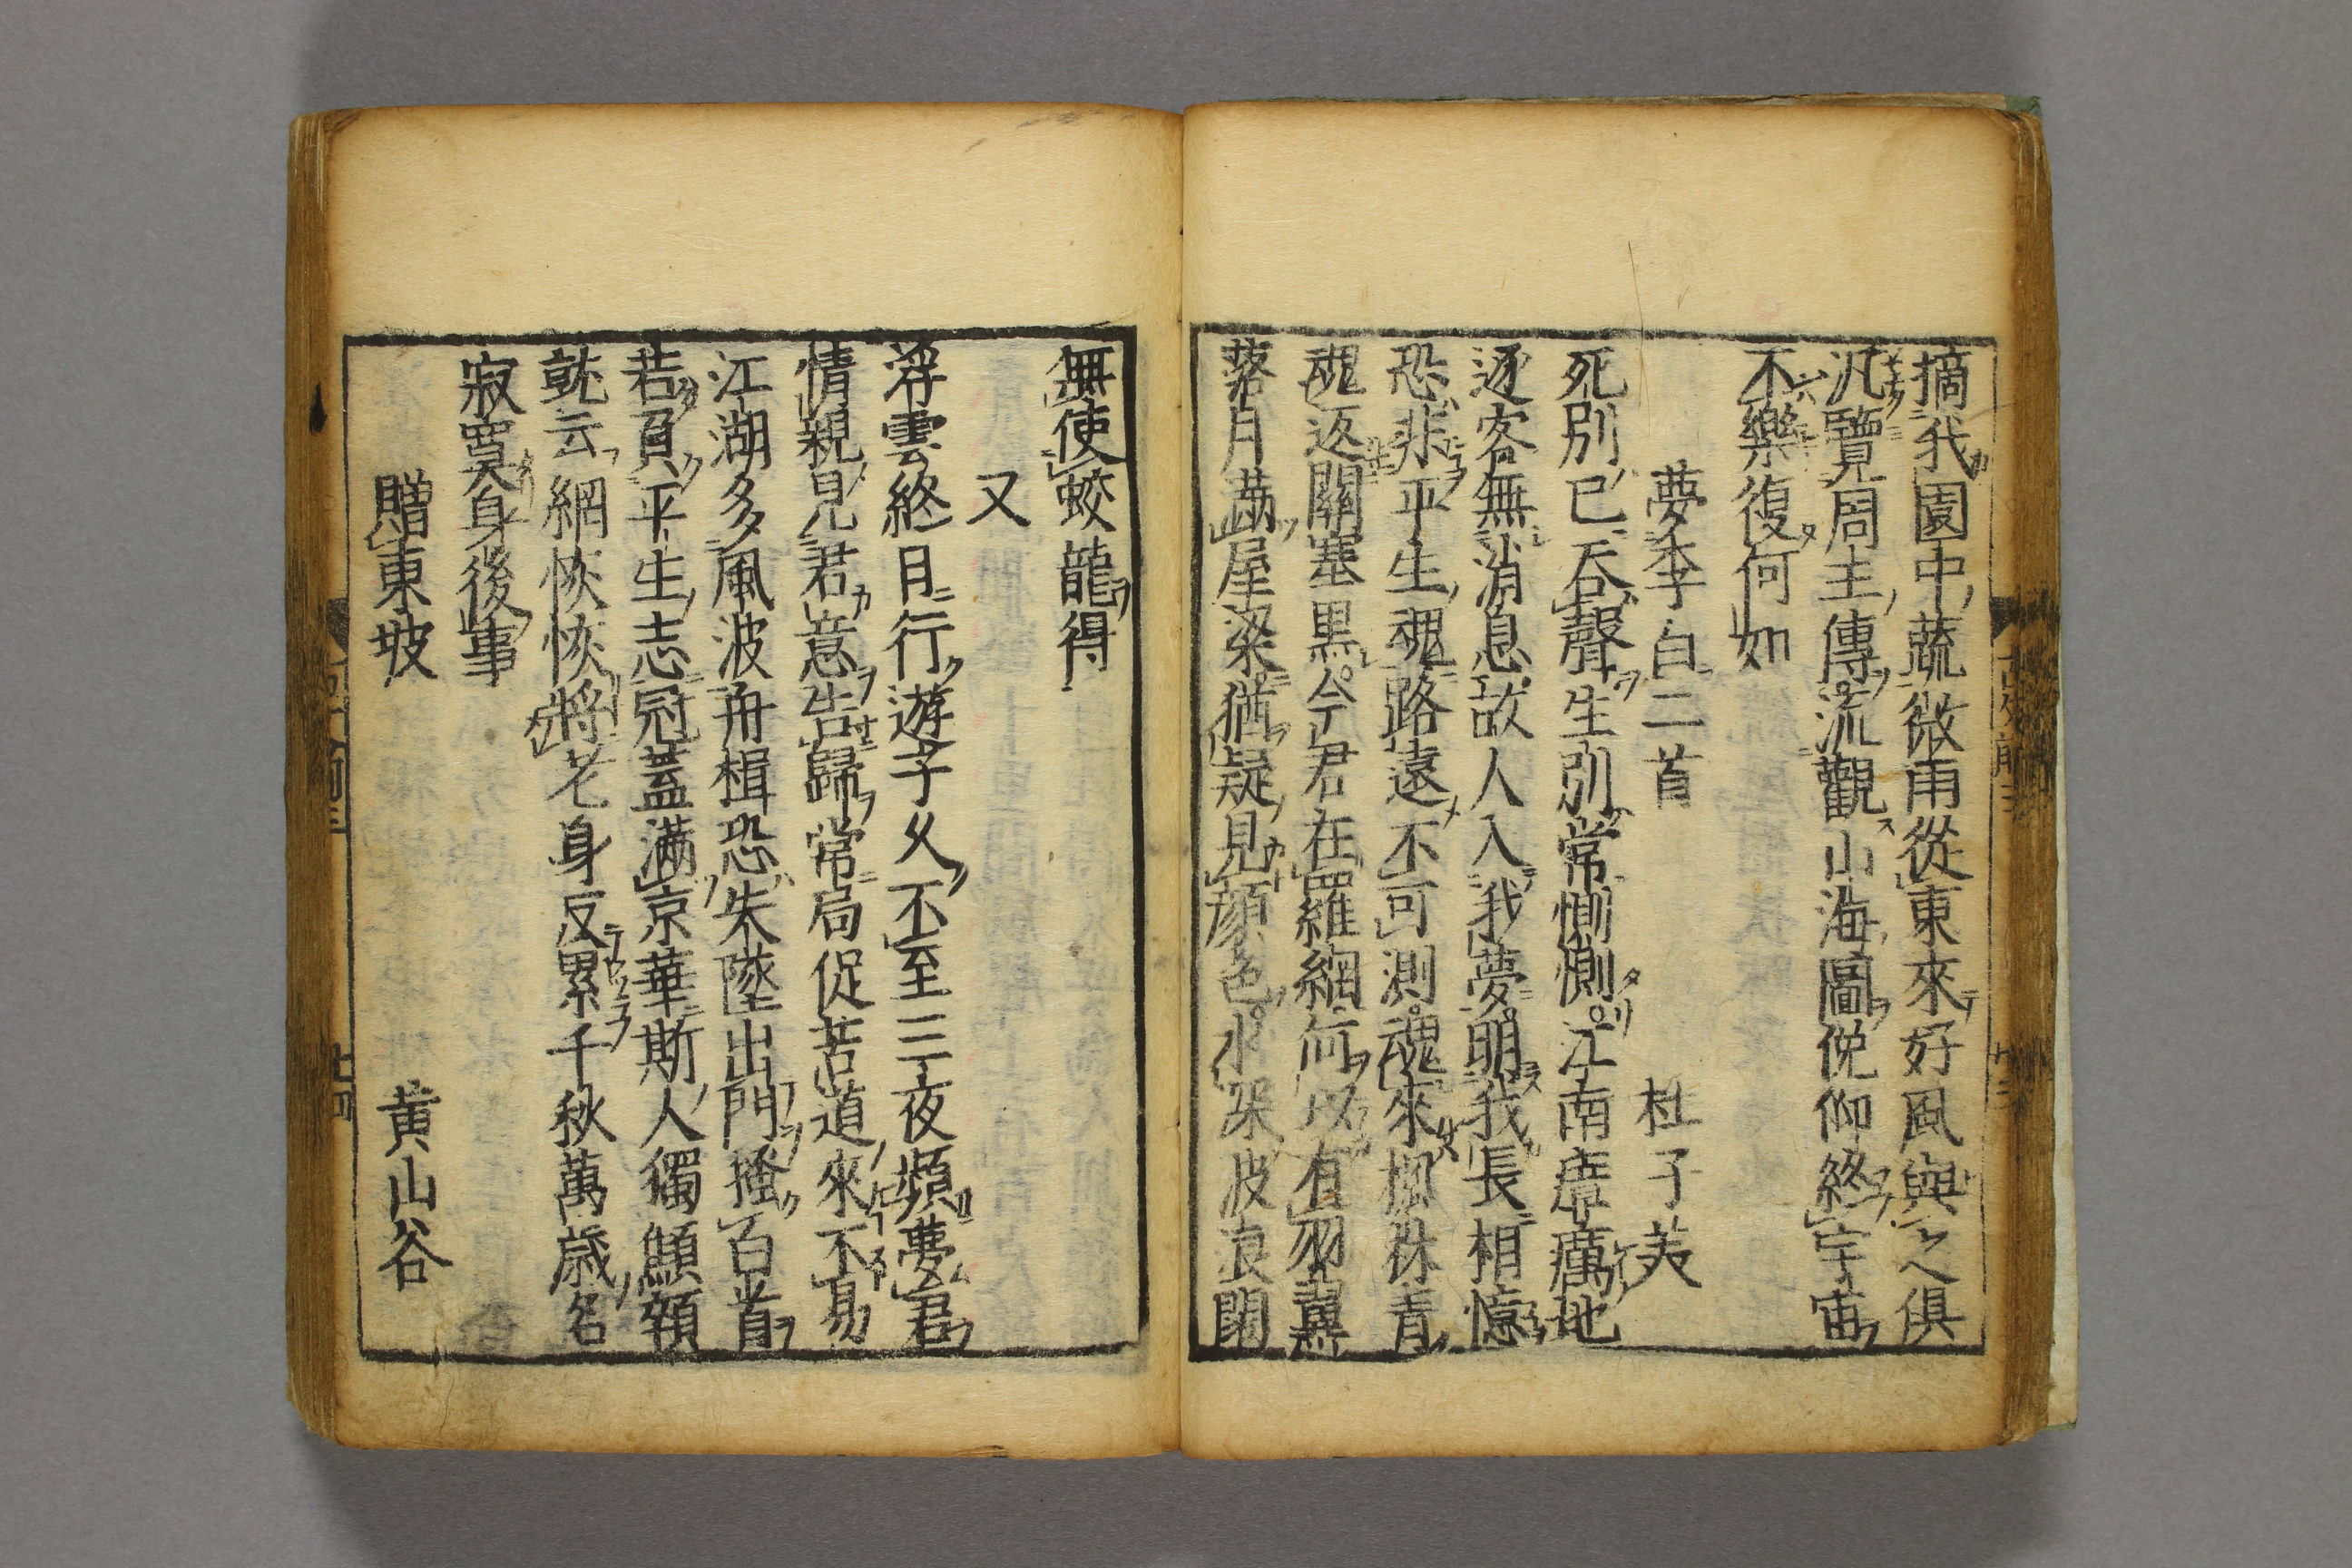 摘我園中蔬微雨從東來好風與之俱
汎覽周王傳流觀山海圖俛仰終宇宙
不樂復何如
夢李白二首 杜子美
死別已吞聲生別常惻惻江南瘴癘地
逐客無消息故人入我夢明我長相憶
恐非平生魂路遠不可測魂來楓林青
魂返關塞黑今君在羅網何以有羽翼
落月滿屋梁猶疑見顏色水深波浪闊
無使蛟龍得
又
浮雲終日行遊子久不至三夜頻夢君
情親見君意告歸常局促苦道來不易
江湖多風波舟楫恐失墜出門搔百首
若負平生志冠蓋滿京華斯人獨顦顇
孰云網恢恢將老身反累千秋萬歲名
寂寞身後事
贈東坡 黃山谷